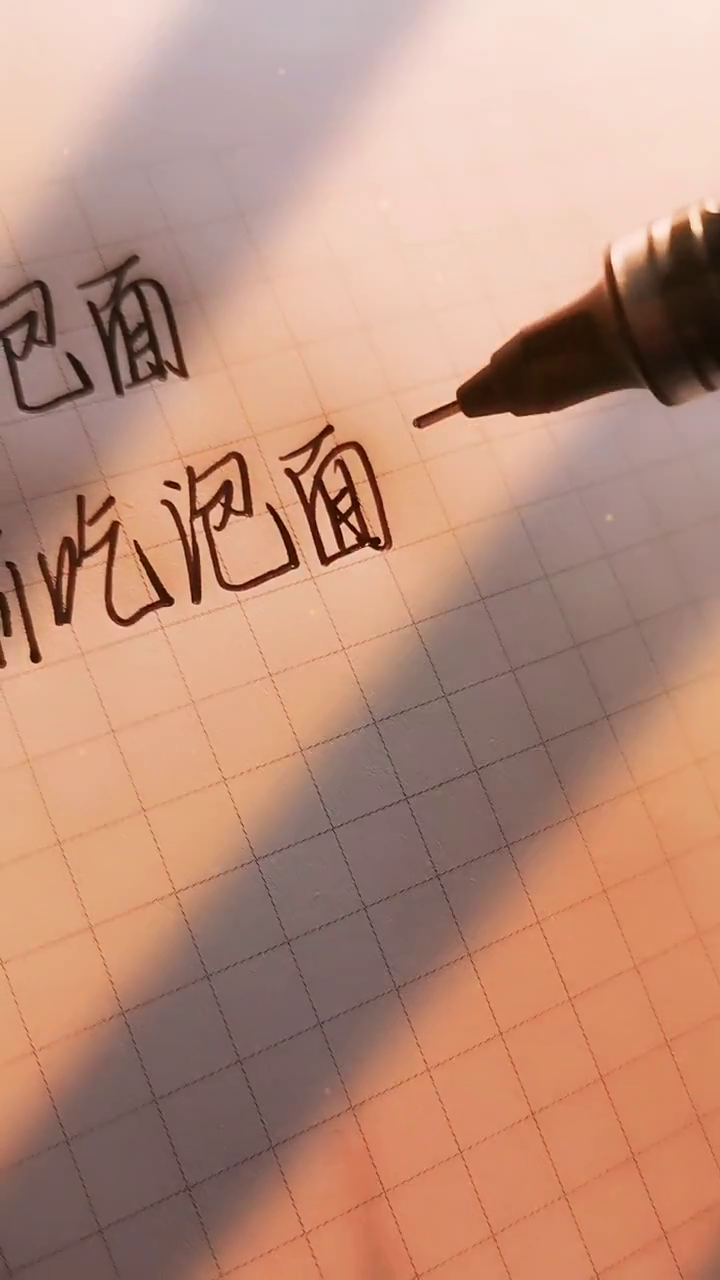 泡面
吃泡面